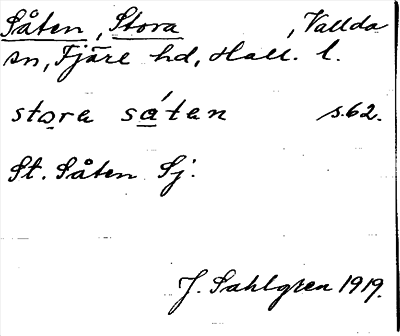 Såten, Stora, Vallda
sn, Fjäre hd, Hall. l.
stora såtan s. 62.
St. Såten Sj.
J. Sahlgren 1919.